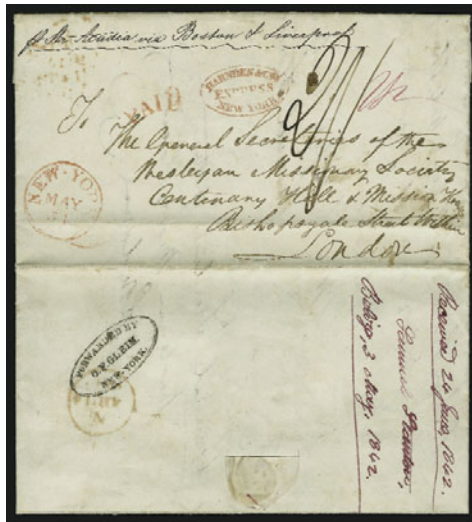 pr Str Acadia via Boston & Liverpool
HARNDEN & CO'S
EXPRESS
NEW YORK
PAID
2/
To
The General Secretaries of the
Wesleyan Missionary Society
Centenary Hall & Mission
Bishopsgate Street Within
London
NEW-YORK
MAY
FORWARDED BY
G.F. GLEIM.
NEW-YORK.
Received 24 June, 1842.
Samuel
3 May, 1842.